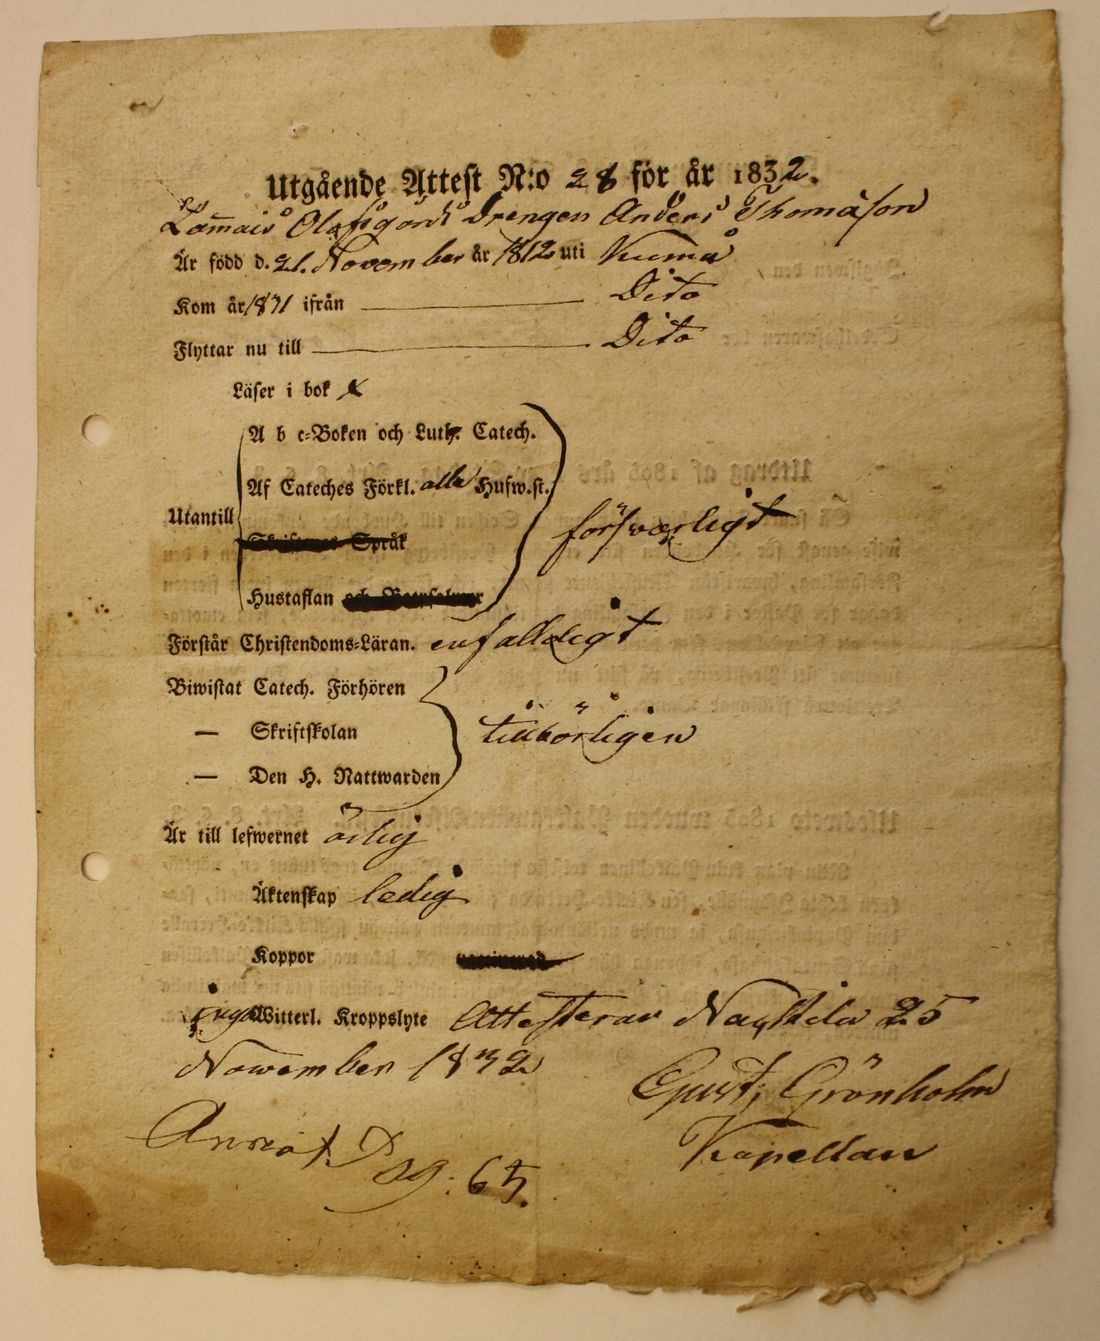 Utgående Attest N:o 28 för år 1832.
Olofsgårds Drengen Anders Thomasson
Är född d. 21. November år 1812 uti Kumo
Kom år 1831 ifrån Dito
Flyttar nu till Dito
Läser i bok
A b c-Boken och Luth. Catech.
Af Cateches Förkl. alla Hufw.st.
Utantill försvarligt
Språk
Hustaflan
Förstår Christendoms-Läran. enfalldigt
Biwistat Catech. Förhören
— Skriftskolan tillbörligen
— Den H. Nattwarden
Är till lefwernet ärlig
Äktenskap ledig
Koppor
inga Witterl. Kroppslyte Attesterar Nackila 25
November 1832
Gust. Grönholm
Kapellan
Annot. pag. 65.